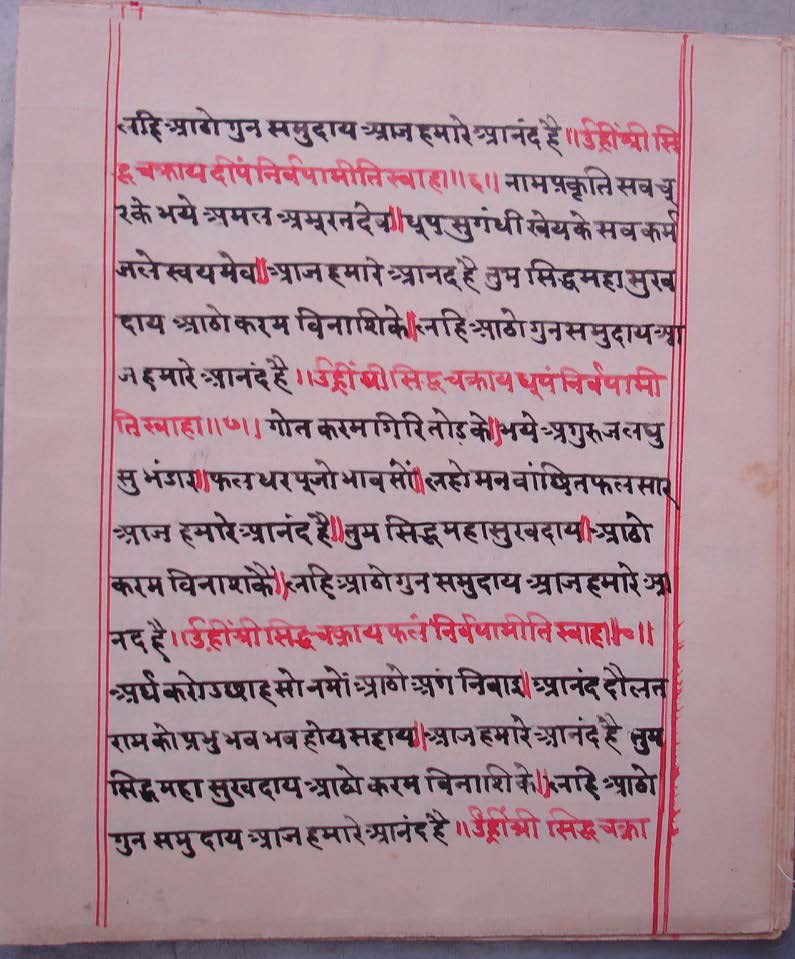 लहि आठो गुन समुदाय आज हमारे आनंद है ॥ उँह्रीं श्री सि
द्ध चक्राय दीपं निर्वपामीति स्वाहा ॥६॥ नाम प्रकृति सव चू
रके भये अमल अमूरत देव ॥ धूप सुगंधी खेयके सव कर्म
जले स्वयमेव ॥ आज हमारे आनद है तुम सिद्ध महा सुख
दाय आठो करम विनाशिके ॥ लहि आठो गुन समुदाय आ
ज हमारे आनंद है ॥ उँह्रीं श्री सिद्ध चक्राय धूपं निर्वपामी
ति स्वाहा ॥७॥ गोत करम गिरि तोड़ के ॥ भये अगुरु जलघु
सु भंडार ॥ फल धर पूजो भाव सों ॥ लहो मन वांछित फल सार
आज हमारे आनंद है ॥ तुम सिद्ध महा सुखदाय ॥ आठो
करम विनाशकै ॥ लहि आठो गुन समुदाय आज हमारे आ
नद है ॥ उँह्रीं श्री सिद्ध चक्राय फलं निर्वपामीति स्वाहा ॥८॥
अर्घ करो उछाह सो नमों आठो अंग निवाइ ॥ आनंद दौलत
राम को प्रभु भव भव होय सहाय ॥ आज हमारे आनंद है तुम
सिद्ध महा सुखदाय आठो करम बिनाशिके ॥ लहि आठो
गुन समुदाय आज हमारे आनंद है ॥ उँह्रीं श्री सिद्ध चक्रा